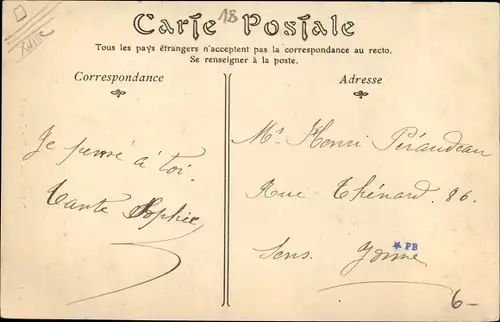 Carte Postale
18
Tous les pays étrangers n'acceptent pas la correspondance au recto.
Se renseigner à la poste.
Correspondance
Je pense à toi.
Tante Sophie
Adresse
Mr Henri Péraudeau
Rue Thénard. 86.
Sens. Yonne
★ PB
6-